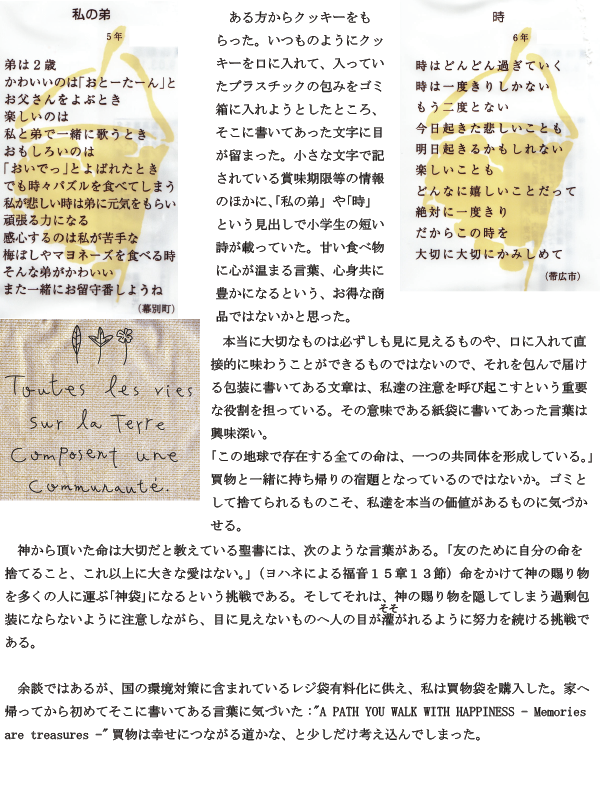 私の弟
5年
弟は２歳
かわいいのは「おとーたーん」と
お父さんをよぶとき
楽しいのは
私と弟で一緒に歌うとき
おもしろいのは
「おいでっ」とよばれたとき
でも時々パズルを食べてしまう
私が悲しい時は弟に元気をもらい
頑張る力になる
感心するのは私が苦手な
梅ぼしやマヨネーズを食べる時
そんな弟がかわいい
また一緒にお留守番しようね
（幕別町）
ある方からクッキーをも
らった。いつものようにクッ
キーを口に入れて、入ってい
たプラスチックの包みをゴミ
箱に入れようとしたところ、
そこに書いてあった文字に目
が留まった。小さな文字で記
されている賞味期限等の情報
のほかに、「私の弟」や「時」
という見出しで小学生の短い
詩が載っていた。甘い食べ物
に心が温まる言葉、心身共に
豊かになるという、お得な商
品ではないかと思った。
時
6年
時はどんどん過ぎていく
時は一度きりしかない
もう二度とない
今日起きた悲しいことも
明日起きるかもしれない
楽しいことも
どんなに嬉しいことだって
絶対に一度きり
だからこの時を
大切に大切にかみしめて
（帯広市）
Toutes les vies
sur la Terre
composent une
communauté.
本当に大切なものは必ずしも見に見えるものや、口に入れて直
接的に味わうことができるものではないので、それを包んで届け
る包装に書いてある文章は、私達の注意を呼び起こすという重要
な役割を担っている。その意味である紙袋に書いてあった言葉は
興味深い。
「この地球で存在する全ての命は、一つの共同体を形成している。」
買物と一緒に持ち帰りの宿題となっているのではないか。ゴミと
して捨てられるものこそ、私達を本当の価値があるものに気づか
せる。
神から頂いた命は大切だと教えている聖書には、次のような言葉がある。「友のために自分の命を
捨てること、これ以上に大きな愛はない。」（ヨハネによる福音１５章１３節）命をかけて神の賜り物
を多くの人に運ぶ「神袋」になるという挑戦である。そしてそれは、神の賜り物を隠してしまう過剰包
装にならないように注意しながら、目に見えないものへ人の目が灌（そそ）がれるように努力を続ける挑戦で
ある。
余談ではあるが、国の環境対策に含まれているレジ袋有料化に供え、私は買物袋を購入した。家へ
帰ってから初めてそこに書いてある言葉に気づいた："A PATH YOU WALK WITH HAPPINESS - Memories
are treasures -" 買物は幸せにつながる道かな、と少しだけ考え込んでしまった。